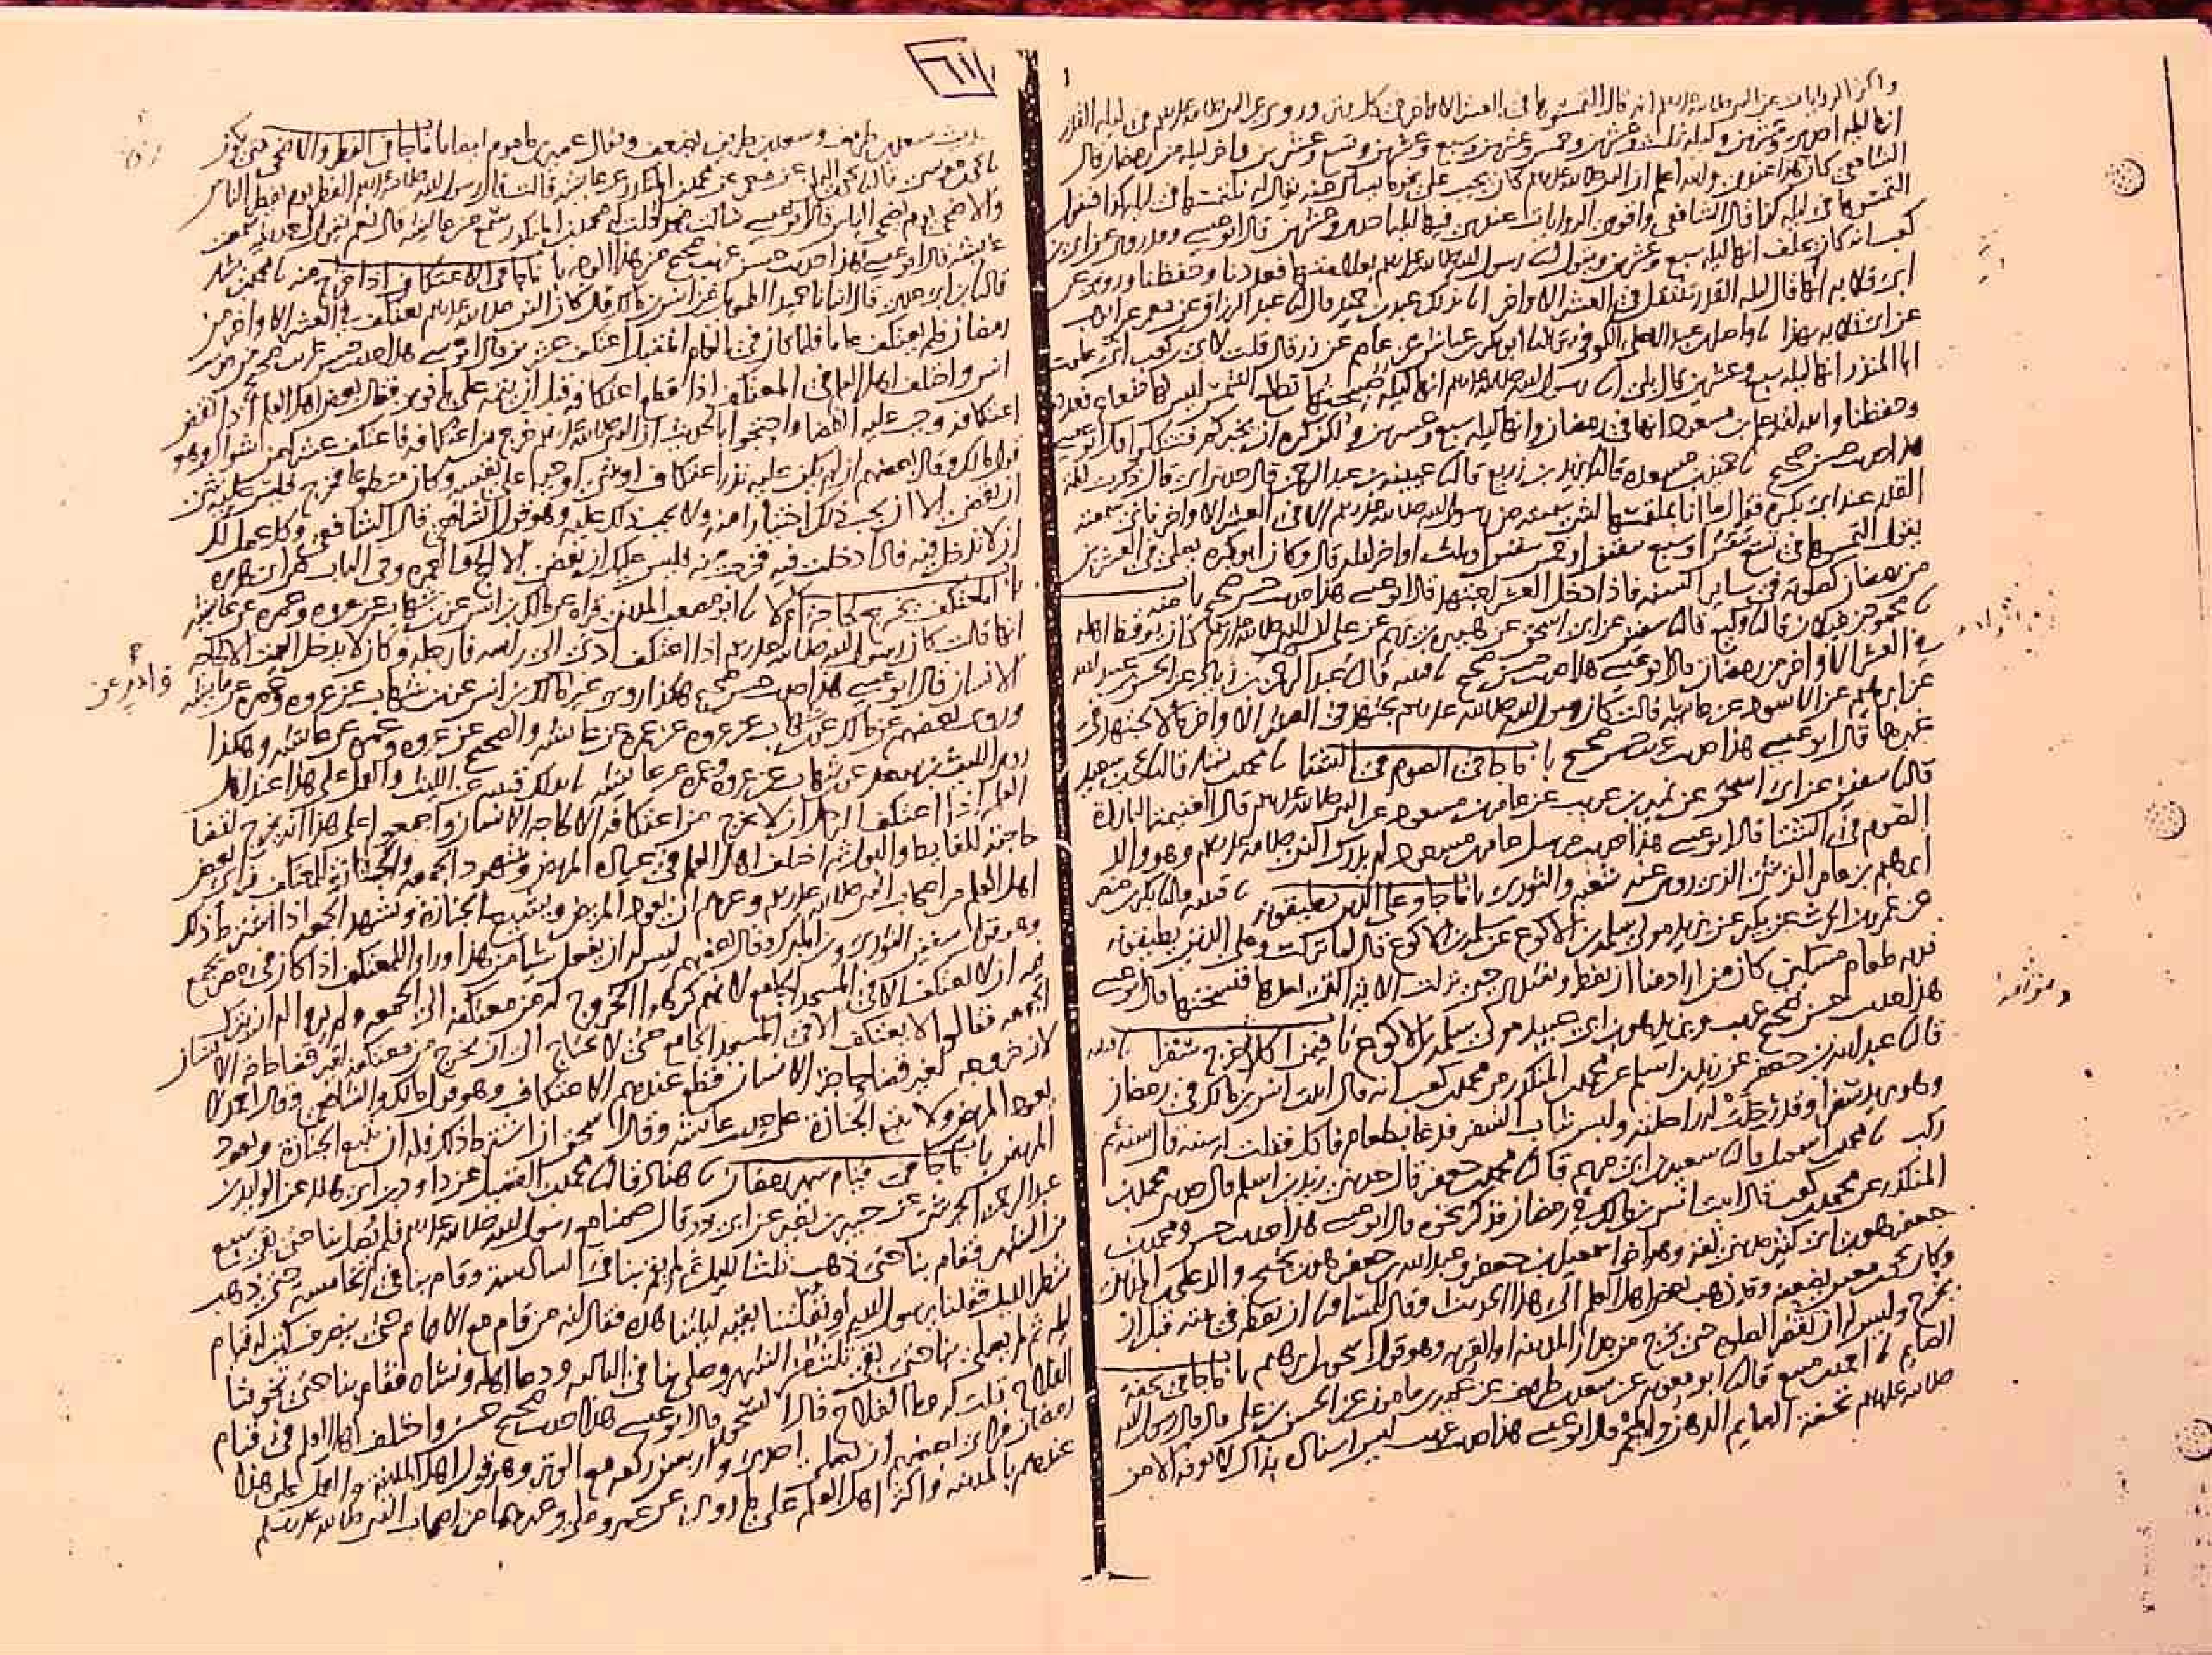 واكثر الروايات عن النبي صلى الله عليه وسلم انه قال التمسوها في العشر الاواخر في كل وتر وروي عن النبي صلى الله عليه وسلم في ليلة القدر
انها ليلة احدى وعشرين وليلة ثلث وعشرين وخمس وعشرين وسبع وعشرين وتسع وعشرين واخر ليلة من رمضان قال
الشافعي كان هذا عندي والله اعلم ان النبي صلى الله عليه وسلم كان يجيب على نحو ما يسال عنه يقال له نلتمسها في ليلة كذا فيقول
التمسوها في ليلة كذا قال الشافعي واقوى الروايات عندي فيها ليلة احدى وعشرين قال ابو عيسى وقد روي عن ابي بن
كعب انه كان يحلف انها ليلة سبع وعشرين ويقول اخبرنا رسول الله صلى الله عليه وسلم بعلامتها فعددنا وحفظنا وروي عن
ابي قلابة انه قال ليلة القدر تنتقل في العشر الاواخر بذلك عبد بن حميد قال عبد الرزاق عن معمر عن ايوب
عن ابي قلابة بهذا واصل بن عبد الاعلى الكوفي ابو بكر بن عياش عن عاصم عن زر قال قلت لابي بن كعب اني علمت
ابا المنذر انها ليلة سبع وعشرين قال بلى رسول الله صلى الله عليه وسلم انها ليلة صبيحتها تطلع الشمس ليس لها شعاع فعددنا
وحفظنا والله لقد علم ابن مسعود انها في رمضان وانها ليلة سبع وعشرين ولكن كره ان يخبركم فتتكلوا قال ابو عيسى
هذا حديث حسن صحيح حميد بن مسعدة قال يزيد بن زريع قال عيينة بن عبد الرحمن قال حدثني ابي قال ذكرت ليلة
القدر عند ابي بكرة فقال ما انا بملتمسها لشي سمعته من رسول الله صلى الله عليه وسلم الا في العشر الاواخر فاني سمعته
يقول التمسوها في تسع يبقين او سبع يبقين او خمس يبقين او ثلث اواخر ليلة قال وكان ابو بكرة يصلي في العشرين
من رمضان كصلوته في ساير السنة فاذا دخل العشر اجتهد قال ابو عيسى هذا حديث حسن صحيح باب منه
محمود بن غيلان قال وكيع قال سفين عن ابي اسحق عن هبيرة بن يريم عن علي ان النبي صلى الله عليه وسلم كان يوقظ اهله
في العشر الاواخر من رمضان قال ابو عيسى هذا حديث حسن صحيح قتيبة قال عبد الواحد بن زياد عن الحسن بن عبيد الله
عن ابرهيم عن الاسود عن عايشة قالت كان رسول الله صلى الله عليه وسلم يجتهد في العشر الاواخر ما لا يجتهد في
غيرها قال ابو عيسى هذا حديث غريب حسن صحيح باب ما جا في الصوم في الشتا محمد بن بشار قال يحيى بن سعيد
قال سفين عن ابي اسحق عن نمير بن عريب عن عامر بن مسعود عن النبي صلى الله عليه وسلم قال الغنيمة الباردة
الصوم في الشتا قال ابو عيسى هذا حديث مرسل عامر بن مسعود لم يدرك النبي صلى الله عليه وسلم وهو والد
ابرهيم بن عامر القرشي الذي روى عنه شعبة والثوري باب ما جا وعلى الذين يطيقونه قتيبة قال بكر بن مضر
عن عمرو بن الحرث عن بكير عن يزيد مولى سلمة بن الاكوع عن سلمة بن الاكوع قال لما نزلت وعلى الذين يطيقونه
فدية طعام مسكين كان من اراد منا ان يفطر ويفتدي حتى نزلت الاية التي بعدها فنسختها قال ابو عيسى
هذا حديث حسن صحيح غريب ويزيد هو ابن ابي عبيد مولى سلمة بن الاكوع باب فيمن اكل ثم خرج سفرا قتيبة
قال عبد الله بن جعفر عن زيد بن اسلم عن محمد بن المنكدر عن محمد بن كعب انه قال اتيت انس بن مالك في رمضان
وهو يريد سفرا وقد رحلت له راحلته ولبس ثياب السفر فدعا بطعام فاكل فقلت له سنة قال سنة ثم
ركب محمد بن اسمعيل قال سعيد بن ابي مريم قال محمد بن جعفر قال حدثني زيد بن اسلم قال حدثني محمد بن
المنكدر عن محمد بن كعب قال اتيت انس بن مالك في رمضان فذكر نحوه قال ابو عيسى هذا حديث حسن ومحمد بن
جعفر هو بن ابي كثير مديني ثقة وهو اخو اسمعيل بن جعفر وعبد الله بن جعفر هو بن نجيح والد علي المديني
وكان يحيى بن معين يضعفه وقد ذهب بعض اهل العلم الى هذا الحديث وقال للمسافر ان يفطر في بيته قبل ان
يخرج وليس له ان يقصر الصلوة حتى يخرج من جدار المدينة او القرية وهو قول اسحق بن ابرهيم باب ما جا في تحفة
الصايم احمد بن منيع قال ابو معوية عن سعد بن طريف عن عمير بن مامون عن الحسن بن علي قال قال رسول الله
صلى الله عليه وسلم تحفة الصايم الدهن والمجمر قال ابو عيسى هذا حديث غريب ليس اسناده بذاك لا نعرفه الا من
٦١
حديث سعد بن طريف وسعد بن طريف يضعف ويقال عمير بن ماموم ايضا باب ما جا في الفطر والاضحى متى يكون
يحيى بن موسى قال يحيى بن اليمان عن معمر عن محمد بن المنكدر عن عايشة قالت قال رسول الله صلى الله عليه وسلم الفطر يوم يفطر الناس
والاضحى يوم يضحي الناس قال ابو عيسى سالت محمدا قلت له محمد بن المنكدر سمع من عايشة قال نعم يقول في حديثه سمعت
عايشة قال ابو عيسى هذا حديث حسن غريب صحيح من هذا الوجه باب ما جا في الاعتكاف اذا خرج منه محمد بن بشار
قال ابن ابي عدي قال انبانا حميد الطويل عن انس بن مالك قال كان النبي صلى الله عليه وسلم يعتكف في العشر الاواخر من
رمضان فلم يعتكف عاما فلما كان في العام المقبل اعتكف عشرين قال ابو عيسى هذا حديث حسن غريب صحيح من حديث
انس واختلف اهل العلم في المعتكف اذا قطع اعتكافه قبل ان يتمه على ما نوى فقال بعض اهل العلم اذا نقض
اعتكافه وجب عليه القضا واحتجوا بالحديث ان النبي صلى الله عليه وسلم خرج من اعتكافه فاعتكف عشرا من شوال وهو
قول مالك وقال بعضهم ان لم يكن عليه نذر اعتكاف او شي اوجبه على نفسه وكان متطوعا فخرج فليس عليه شي
ان يقضي الا ان يحب ذلك اختيارا منه ولا يجب ذلك عليه وهو قول الشافعي قال الشافعي وكل عمل لك
ان لا تدخل فيه فاذا دخلت فيه فخرجت منه فليس عليك ان تقضي الا الحج والعمرة وفي الباب عن ابي هريرة
باب المعتكف يخرج لحاجته ام لا ابو مصعب المديني قراة عن مالك بن انس عن ابن شهاب عن عروة وعمرة عن عايشة
انها قالت كان رسول الله صلى الله عليه وسلم اذا اعتكف ادنى الي راسه فارجله وكان لا يدخل البيت الا لحاجة
الانسان قال ابو عيسى هذا حديث حسن صحيح هكذا روى غير مالك بن انس عن ابن شهاب عن عروة وعمرة عن عايشة
وروى بعضهم عن مالك عن ابن شهاب عن عروة عن عمرة عن عايشة والصحيح عن عروة وعمرة عن عايشة وهكذا
روى الليث بن سعد عن ابن شهاب عن عروة وعمرة عن عايشة بذلك قتيبة عن الليث والعمل على هذا عند اهل
العلم اذا اعتكف الرجل ان لا يخرج من اعتكافه الا لحاجة الانسان واجمعوا على هذا انه يخرج لقضا
حاجته للغايط والبول ثم اختلف اهل العلم في عيادة المريض وشهود الجمعة والجنازة للمعتكف فراى بعض
اهل العلم من اصحاب النبي صلى الله عليه وسلم وغيرهم ان يعود المريض ويشيع الجنازة ويشهد الجمعة اذا اشترط ذلك
وهو قول سفين الثوري وبن المبرك وقال بعضهم ليس له ان يفعل شيا من هذا وراوا للمعتكف اذا كان في مصر يجمع
فيه ان لا يعتكف الا في المسجد الجامع لانهم كرهوا الخروج له من معتكفه الى الجمعة ولم يروا له ان يترك
الجمعة فقالوا لا يعتكف الا في المسجد الجامع حتى لا يحتاج الى ان يخرج من معتكفه لغير قضا حاجة الانسان
لان خروجه لغير قضا حاجة الانسان قطع عندهم للاعتكاف وهو قول مالك والشافعي وقال احمد لا
يعود المريض ولا يتبع الجنازة على حديث عايشة وقال اسحق ان اشترط ذلك فله ان يتبع الجنازة ويعود
المريض باب ما جا في قيام شهر رمضان هناد قال محمد بن الفضيل عن داود بن ابي هند عن الوليد بن
عبد الرحمن الجرشي عن جبير بن نفير عن ابي ذر قال صمنا مع رسول الله صلى الله عليه وسلم فلم يصل بنا حتى بقي سبع
من الشهر فقام بنا حتى ذهب ثلث الليل ثم لم يقم بنا في السادسة وقام بنا في الخامسة حتى ذهب
شطر الليل فقلنا يرسول الله لو نفلتنا بقية ليلتنا هذه فقال انه من قام مع الامام حتى ينصرف كتب له قيام
ليلة ثم لم يصلي بنا حتى بقي ثلث من الشهر وصلى بنا في الثالثة ودعا اهله ونساه فقام بنا حتى تخوفنا
الفلاح قلت له وما الفلاح قال السحور قال ابو عيسى هذا حديث صحيح حسن واختلف اهل العلم في قيام
رمضان فراى بعضهم ان يصلي احدى واربعين ركعة مع الوتر وهو قول اهل المدينة والعمل على هذا
عندهم بالمدينة واكثر اهل العلم على ما روي عن عمر وعلي وغيرهما من اصحاب النبي صلى الله عليه وسلم